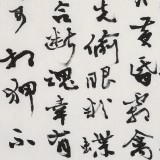 黃昏霜禽
先偷眼粉蝶
合斷魂幸有
可相狎不